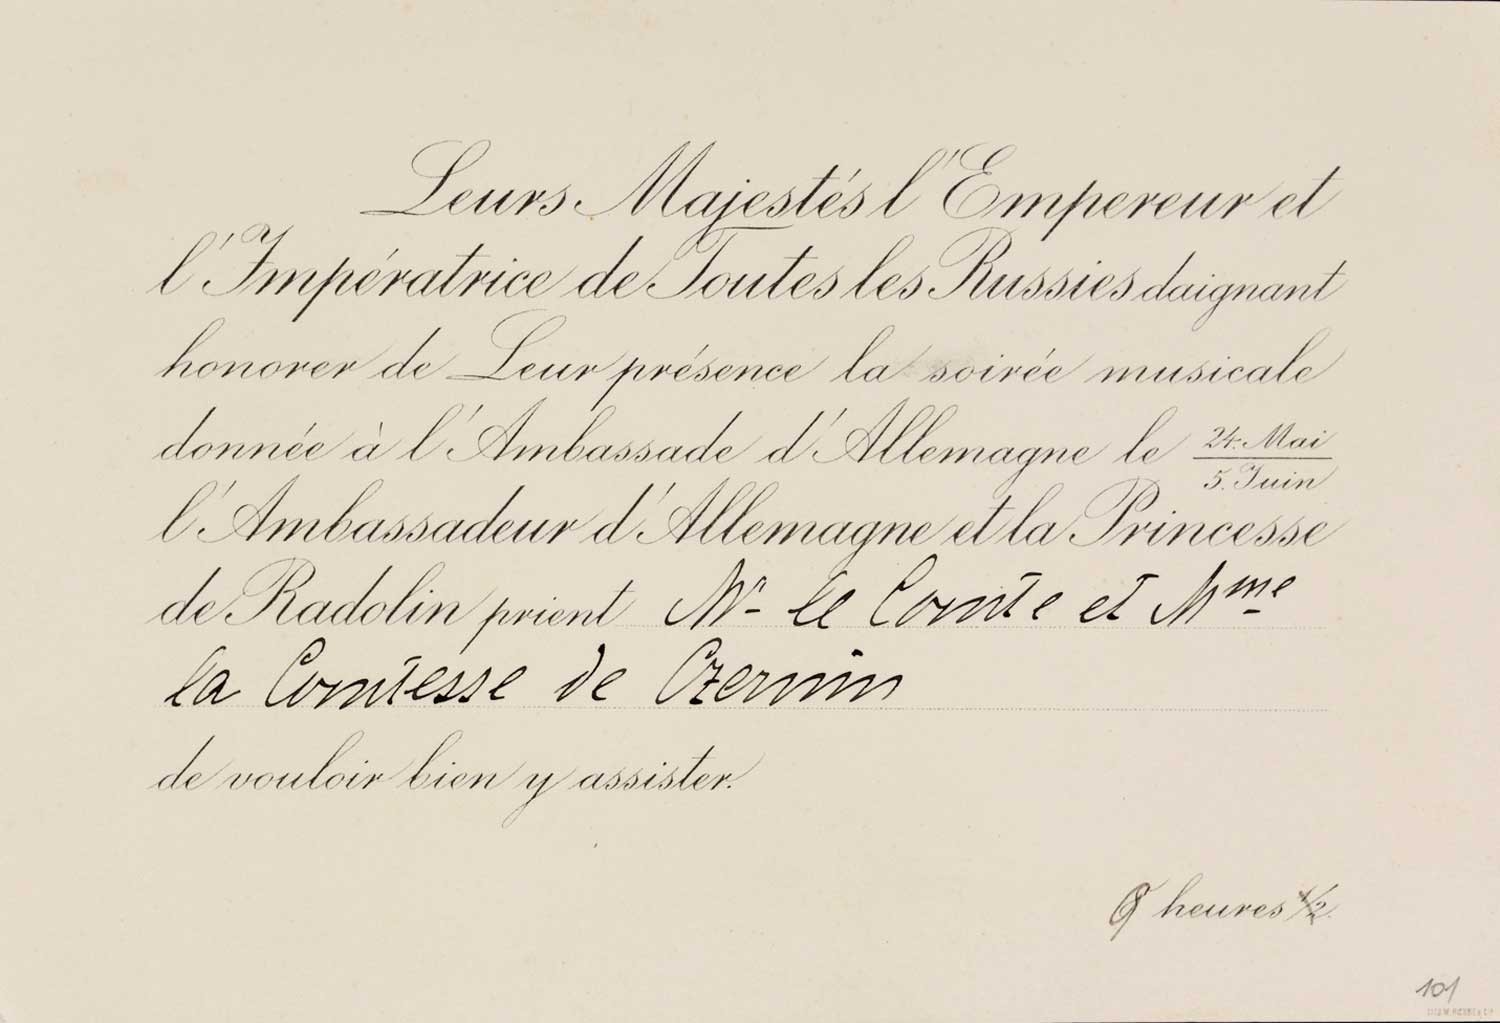 Leurs Majestés l'Empereur et
l'Impératrice de Toutes les Russies daignant
honorer de Leur présence la soirée musicale
donnée à l'Ambassade d'Allemagne le 24. Mai / 5. Juin
l'Ambassadeur d'Allemagne et la Princesse
de Radolin prient Mr le Comte et Mme
la Comtesse de Czernin
de vouloir bien y assister.
heures 1/2.
101